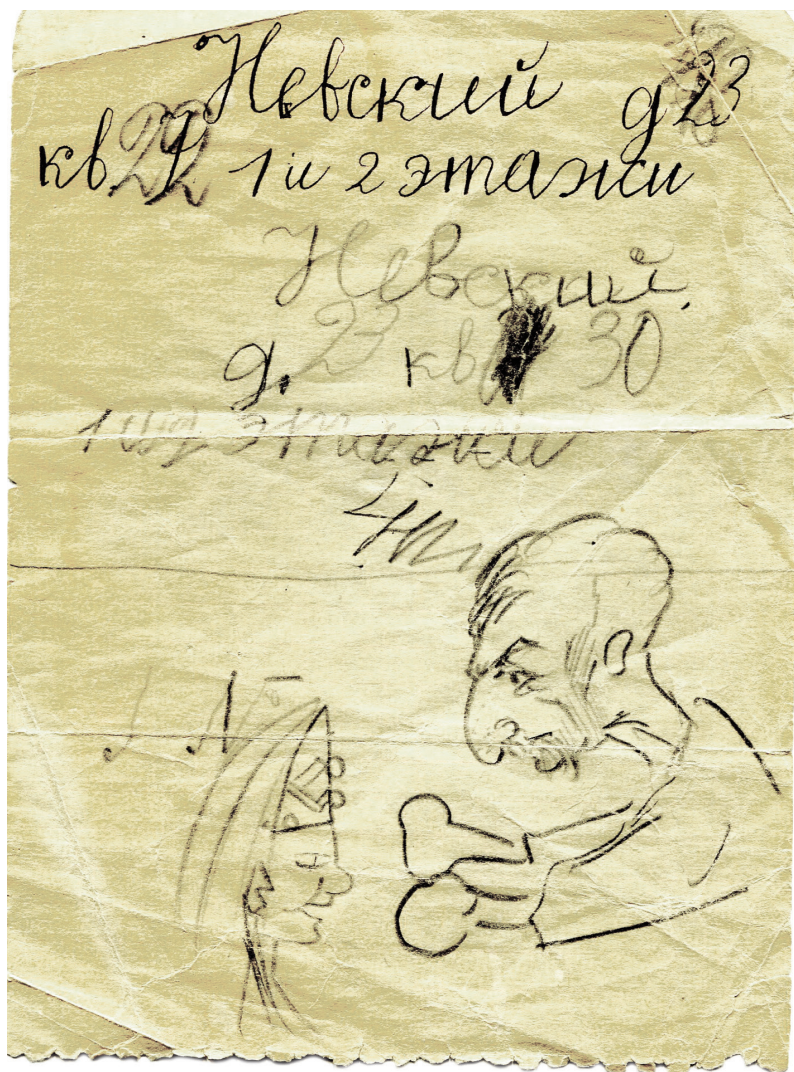 Невский д 23
кв. 22 1 и 2 этажи
Невский.
д. 23 кв 30
1 и 2 этажи